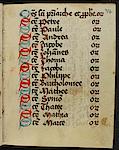 Sce Petre or
Sce Paule or
Sce Andrea or
Sce Jacobe or
Sce Johānes or
Sce Thoma or
Sce Jacobe or
Sce Philippe or
Sce Bartholomee or
Sce Mathee or
Sce Symō or
Sce Thatee or
Sce Mathia or
Sce Marce or